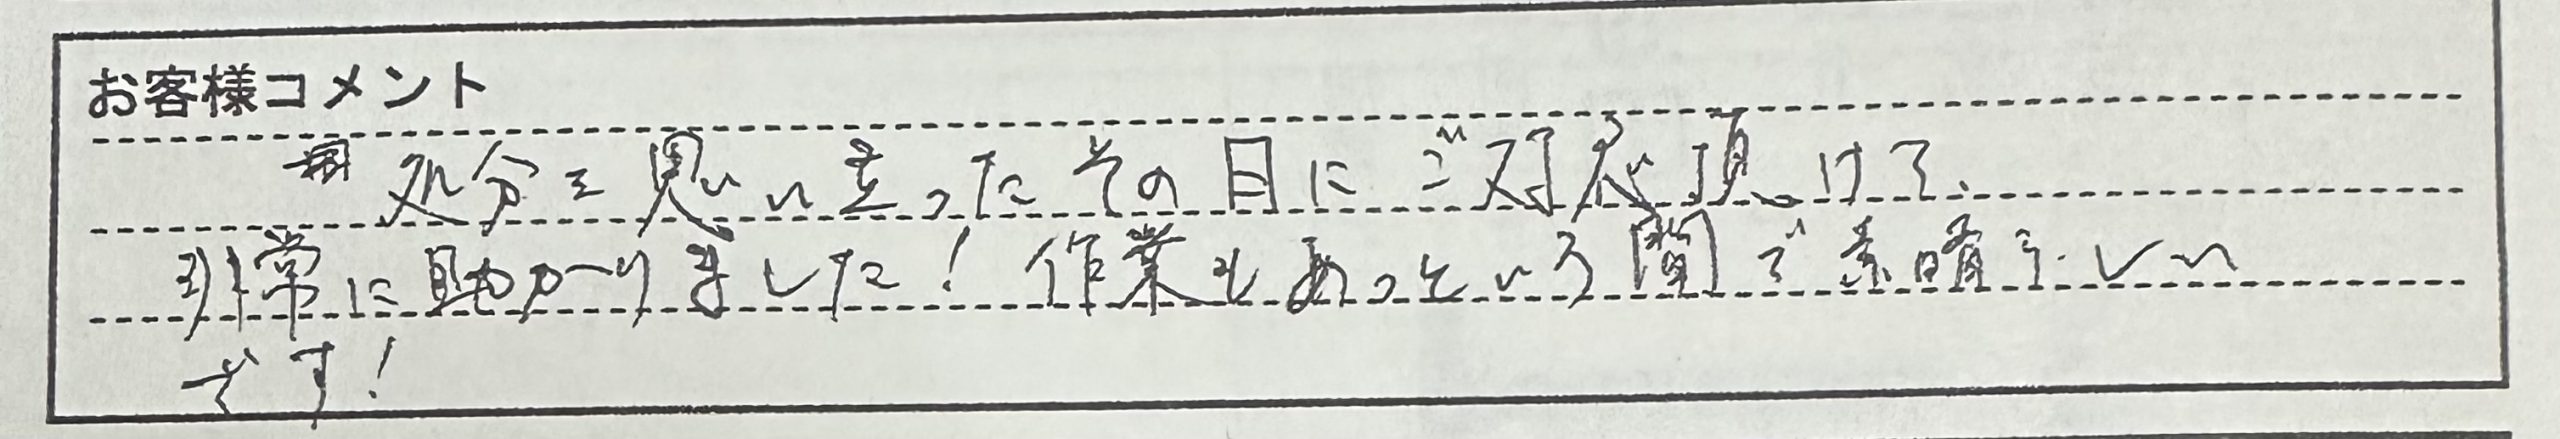 お客様コメント
処分を思い立ったその日にご対応頂けて、
非常に助かりました！作業もあっという間で素晴らしい
です！